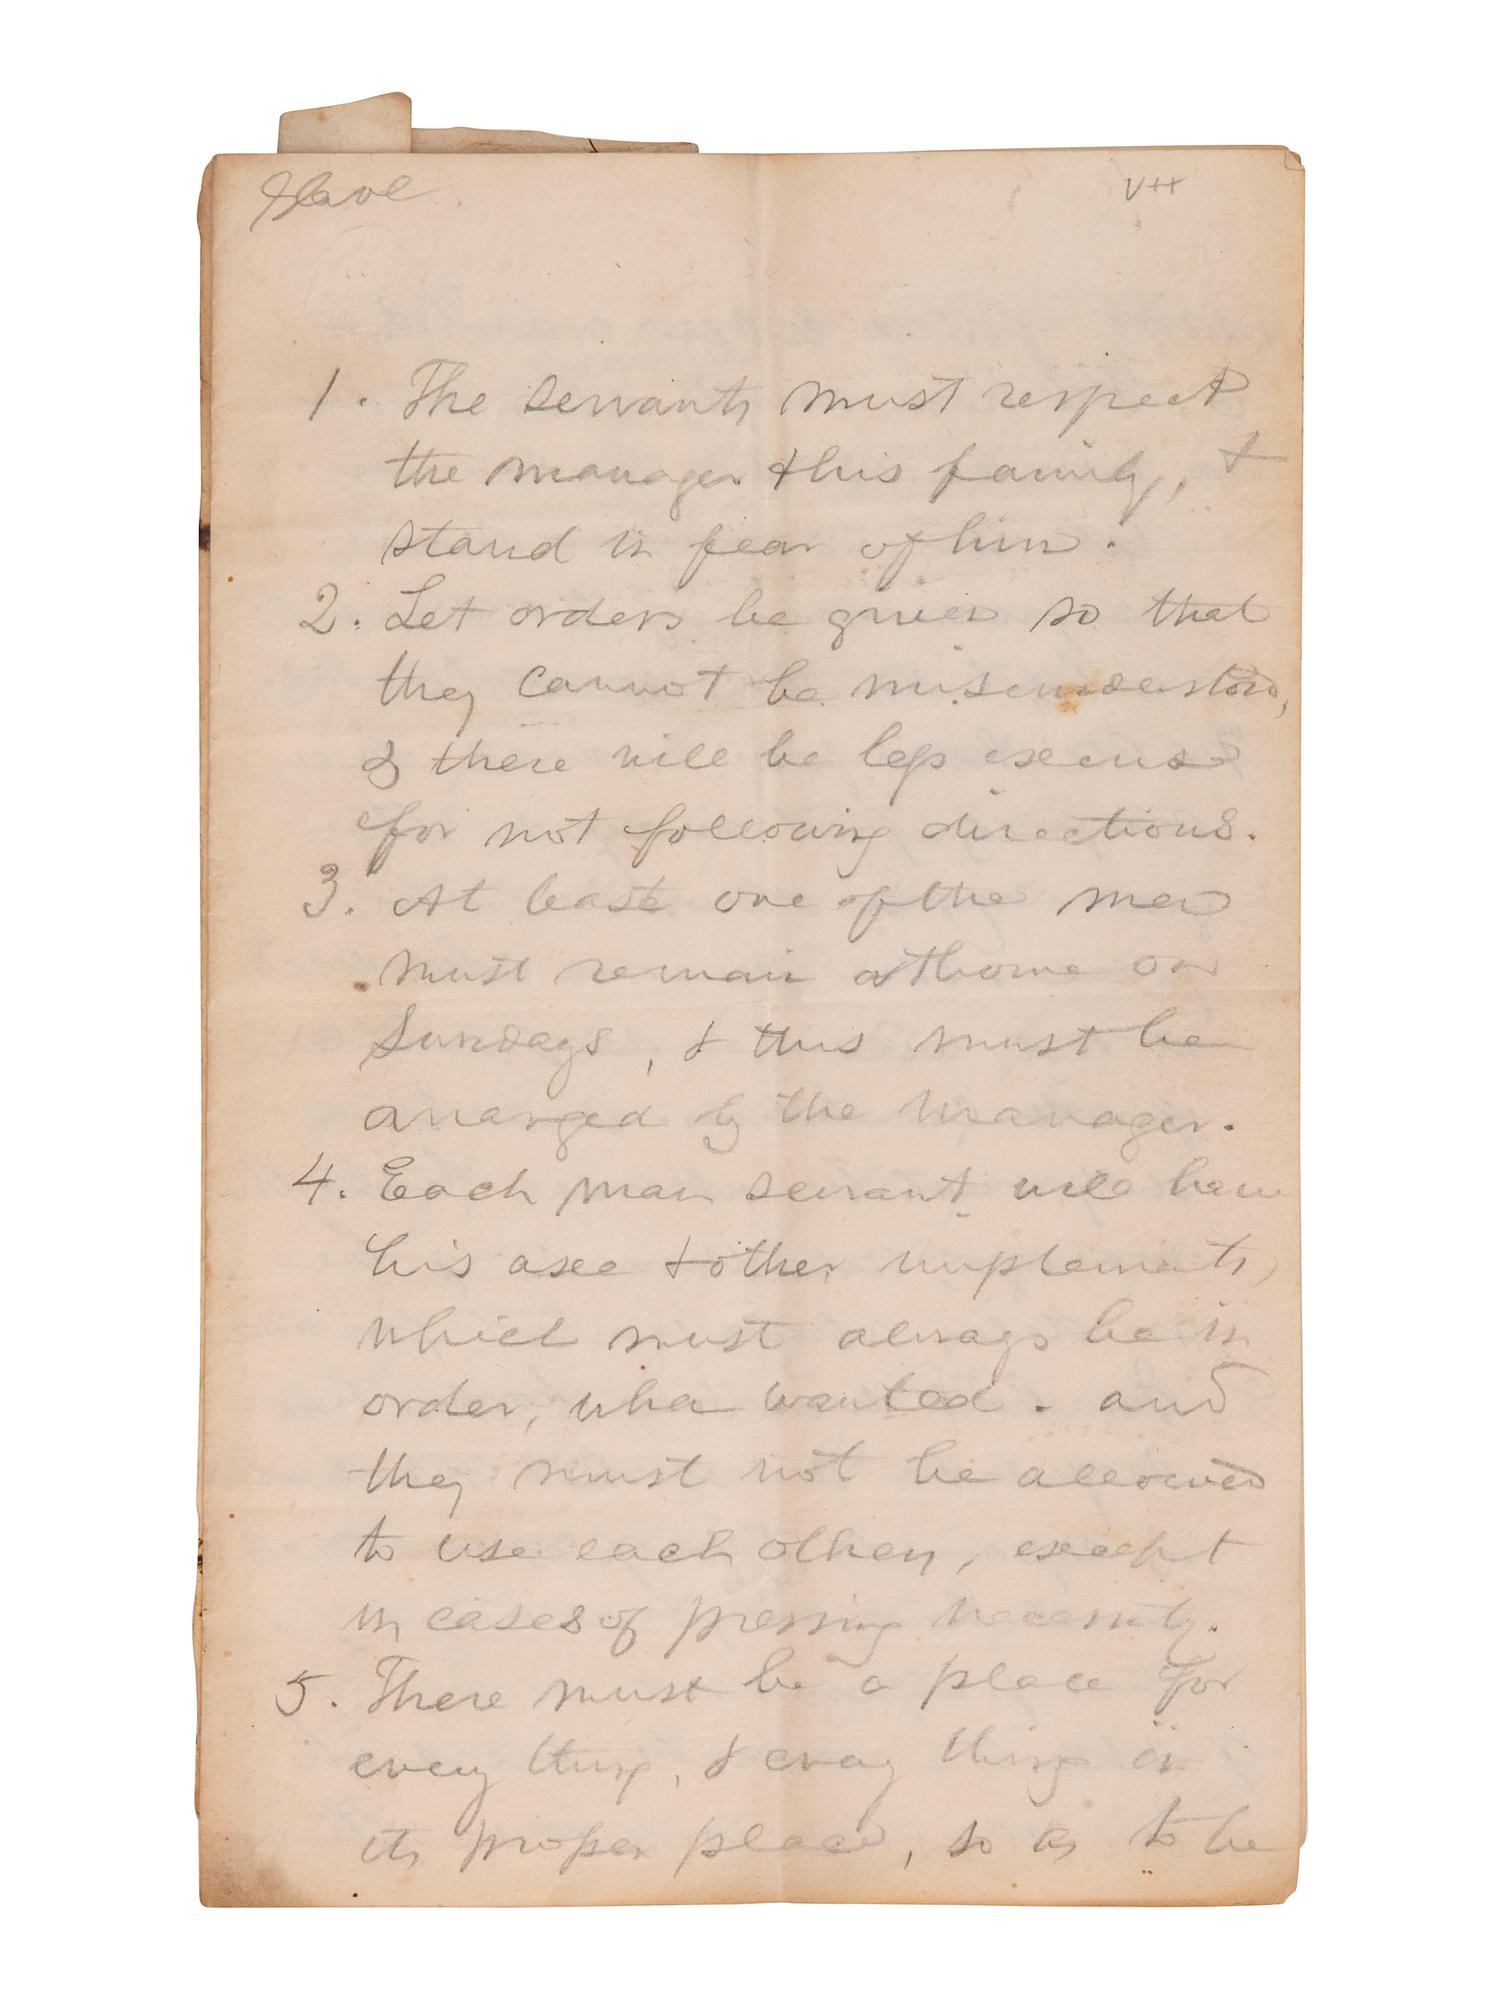 Slave
V++
1. The servants must respect
the manager & his family, &
stand in fear of him.
2. Let orders be given so that
they cannot be misunderstood,
& there will be less excuse
for not following directions.
3. At least one of the men
must remain at home on
Sundays, & this must be
arranged by the manager.
4. Each man servant will have
his axe & other implements,
which must always be in
order, when wanted. and
they must not be allowed
to use each others, except
in cases of pressing necessity.
5. There must be a place for
every thing, & every thing in
its proper place, so as to be